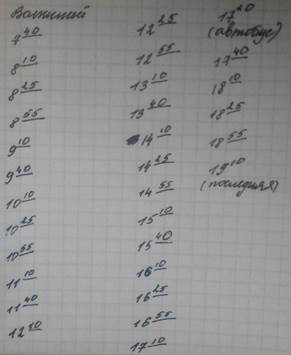 Волжский
7 40
8 10
8 25
8 55
9 10
9 40
10 10
10 25
10 55
11 10
11 40
12 10
12 25
12 55
13 10
13 40
14 10
14 25
14 55
15 10
15 40
16 10
16 25
16 55
17 10
17 20
(автобус)
17 40
18 10
18 25
18 55
19 10
(последняя)